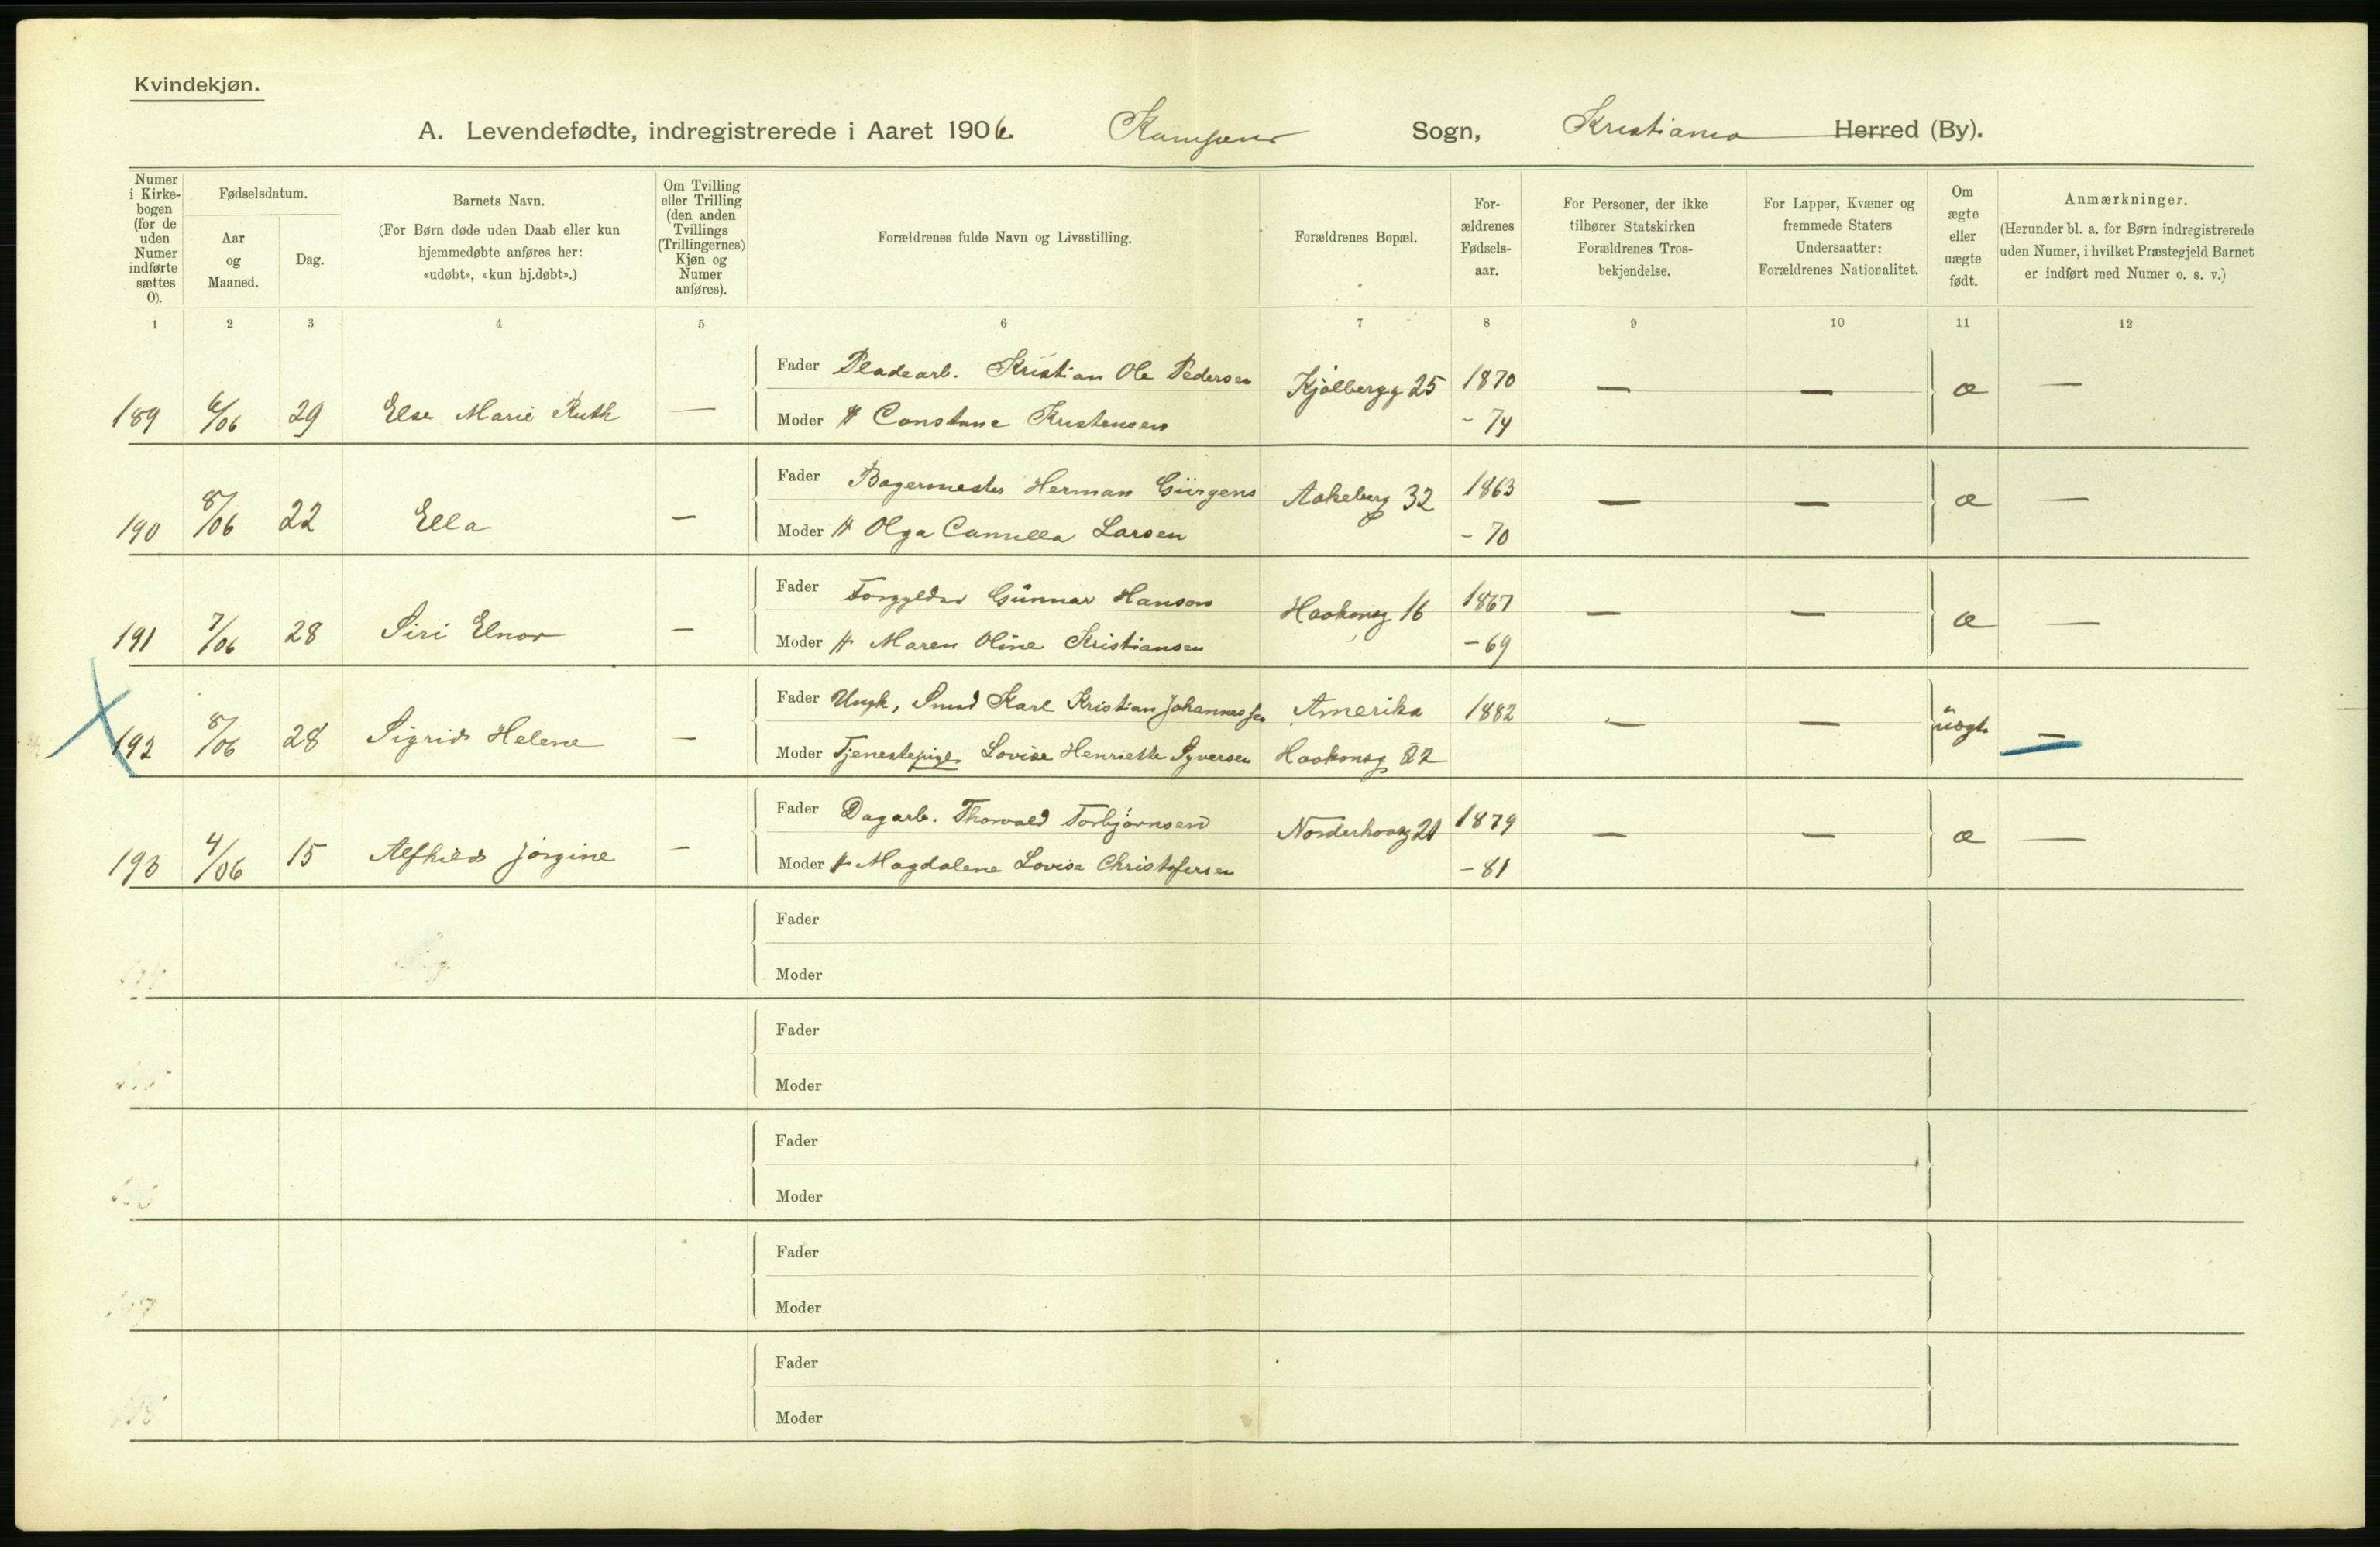 Kvindekjøn.
A. Levendefødte, indregistrerede i Aaret 1906. Kampens Sogn, Kristiania Herred (By).
Numer i Kirke-bogen (for de uden Numer indførte sættes 0).
Fødselsdatum.
Aar og Maaned.
Dag.
Barnets Navn.
(For Børn døde uden Daab eller kun hjemmedøbte anføres her: «udøbt», «kun hj.døbt».)
Om Tvilling eller Trilling (den anden Tvillings (Trillingernes) Kjøn og Numer anføres).
Forældrenes fulde Navn og Livsstilling.
Forældrenes Bopæl.
For-ældrenes Fødsels-aar.
For Personer, der ikke tilhører Statskirken Forældrenes Tros-bekjendelse.
For Lapper, Kvæner og fremmede Staters Undersaatter: Forældrenes Nationalitet.
Om ægte eller uægte født.
Anmærkninger.
(Herunder bl. a. for Børn indregistrerede uden Numer, i hvilket Præstegjeld Barnet er indført med Numer o. s. v.)
1 2 3 4 5 6 7 8 9 10 11 12
Fader Pladearb. Kristian Ole Pedersen Kjølbergg 25 1870 — — æ —
189 6/06 29 Else Marie Ruth — Moder H Constanse Kristensen - 74
Fader Bagermester Herman Gürgens Aakebergg 32 1863 — — æ —
190 8/06 22 Ella — Moder H Olga Camilla Larsen - 70
Fader Forgylder Gunnar Hanson Haakonsg 16 1867 — — æ —
191 7/06 28 Siri Elnor — Moder H Maren Oline Kristiansen - 69
Fader Ungk, Smed Karl Kristian Johannessen Amerika 1882 — — uægt. —
192 8/06 28 Sigrid Helene — Moder Tjenestepige Lovise Henriette Syversen Haakonsg 22
Fader Dagarb. Thorvald Torbjørnsen Norderhovsg 21 1879 — — æ —
193 4/06 15 Alfhild Jørgine — Moder H Magdalene Lovise Christofersen - 81
Fader
Moder
Fader
Moder
Fader
Moder
Fader
Moder
Fader
Moder